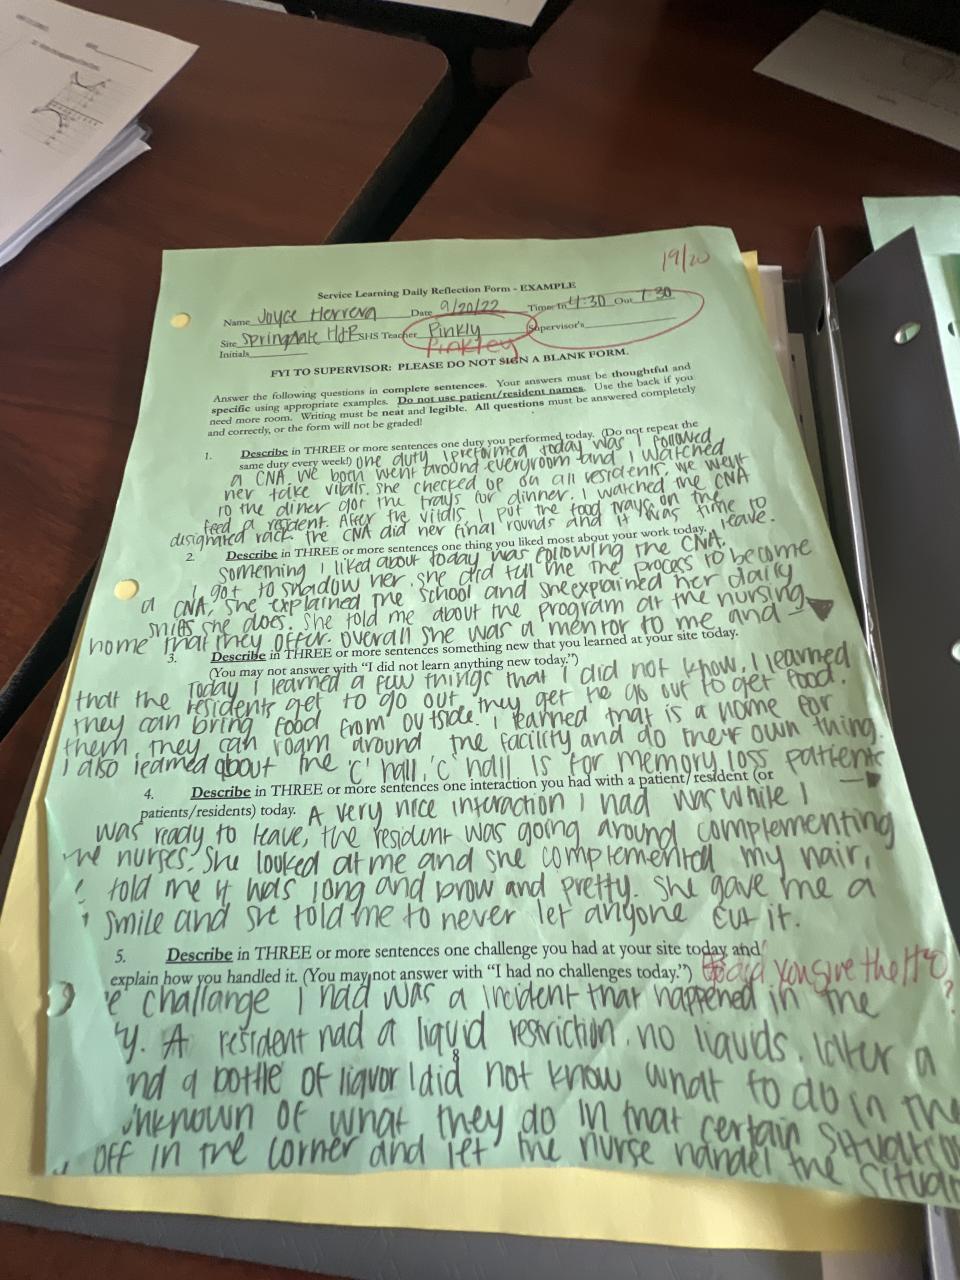 19/20
Service Learning Daily Reflection Form - EXAMPLE
Name Joyce Herrera Date 9/20/22 Time: In 4:30 Out 7:30
Site Springgate H&R SHS Teacher Pinkly Supervisor's
Initials Pinkley
FYI TO SUPERVISOR: PLEASE DO NOT SIGN A BLANK FORM.
Answer the following questions in complete sentences. Your answers must be thoughtful and
specific using appropriate examples. Do not use patient/resident names. Use the back if you
need more room. Writing must be neat and legible. All questions must be answered completely
and correctly, or the form will not be graded!
1. Describe in THREE or more sentences one duty you performed today. (Do not repeat the
same duty every week!) One duty I preformed today was I followed
a CNA. We both went around every room and I watched
her take vitals. She checked up on all residents. We went
to the diner for the trays for dinner. I watched the CNA
feed a resident. After the vitals I put the food trays on the
designated rack. The CNA did her final rounds and it was time to
leave.
2. Describe in THREE or more sentences one thing you liked most about your work today.
Something I liked about today was following the CNA.
I got to shadow her. She did tell me the process to become
a CNA, she explained the school and she explained her daily
shifts she does. She told me about the program at the nursing
home that they offer. Overall she was a mentor to me and
3. Describe in THREE or more sentences something new that you learned at your site today.
(You may not answer with "I did not learn anything new today.")
Today I learned a few things that I did not know. I learned
that the residents get to go out, they get to go out to get food.
they can bring food from outside. I learned that is a home for
them, they can roam around the facility and do their own thing.
I also learned about the 'C' hall, 'C' hall is for memory loss patients
4. Describe in THREE or more sentences one interaction you had with a patient/resident (or
patients/residents) today. A very nice interaction I had was while I
was ready to leave, the resident was going around complementing
the nurses. She looked at me and she complemented my hair,
told me it was long and brow and pretty. She gave me a
smile and she told me to never let anyone cut it.
5. Describe in THREE or more sentences one challenge you had at your site today and
explain how you handled it. (You may not answer with "I had no challenges today.") did you give the H2O?
challange I had was a incident that happened in the
y. A resident had a liquid restriction, no liquids. later a
nd a bottle of liquor I did not know what to do in the
unknown of what they do in that certain
off in the corner and let the nurse handel the